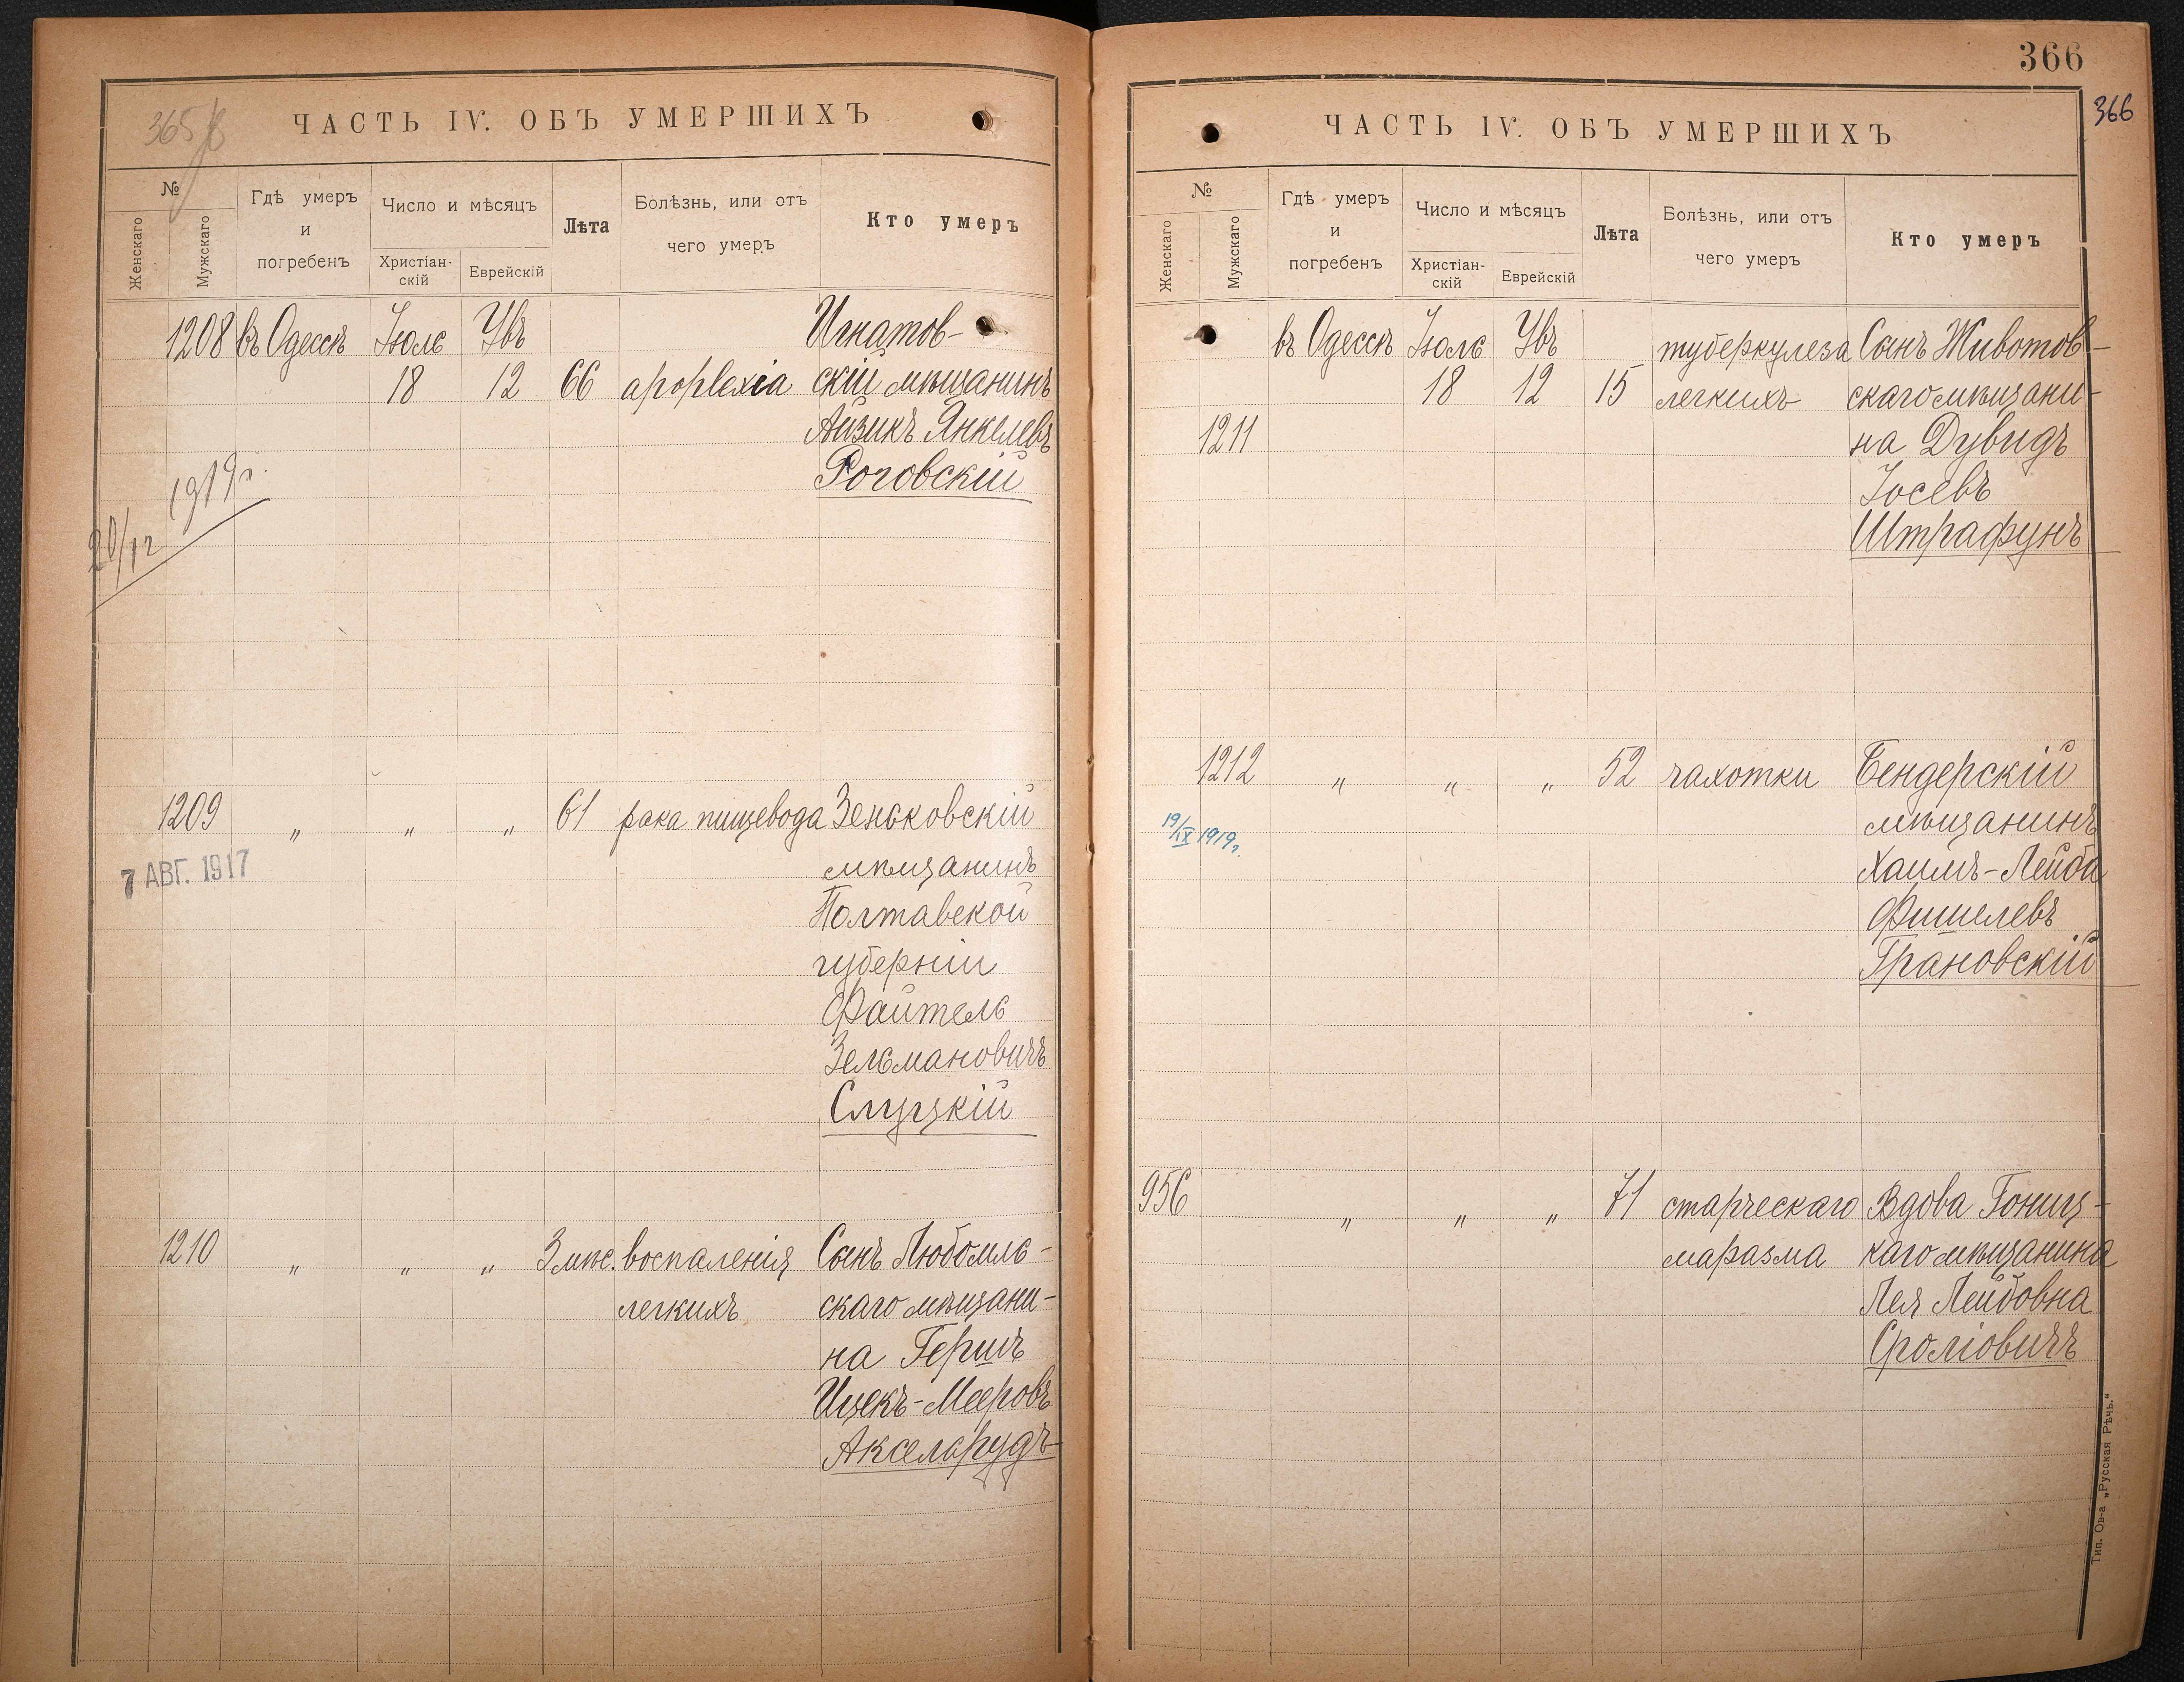 365
ЧАСТЬ IV. ОБЪ УМЕРШИХЪ
№
Женскаго
Мужскаго
Гдѣ умеръ
и
погребенъ
Число и мѣсяцъ
Христіан-
скій
Еврейскій
Лѣта
Болѣзнь, или отъ
чего умеръ
Кто умеръ
1208 въ Одессѣ Іюль Увъ Игнатов-
18 12 66 apoplexia скій мѣщанинъ
Айзикъ Янкелевъ
Роговскій
20/12 1919г.
1209 " " " 61 рака пищевода Зеньковскій
7 АВГ. 1917
мѣщанинъ
Полтавской
губерніи
Файтель
Зельмановичъ
Слуцкій
1210 " " " 3 мѣс. воспаленія Сынъ Любомль-
легкихъ скаго мѣщани-
на Гершъ
Ицекъ-Мееровъ
Аксельрудъ
366
366
ЧАСТЬ IV. ОБЪ УМЕРШИХЪ
№
Женскаго
Мужскаго
Гдѣ умеръ
и
погребенъ
Число и мѣсяцъ
Христіан-
скій
Еврейскій
Лѣта
Болѣзнь, или отъ
чего умеръ
Кто умеръ
въ Одессѣ Іюль Увъ туберкулеза Сынъ Животов-
18 12 15 легкихъ скаго мѣщани-
1211 на Дувидъ
Іосевъ
Штрафунъ
1212 " " " 52 чахотки Бендерскій
19/IX 1919г. мѣщанинъ
Хаимъ-Лейба
Фишелевъ
Грановскій
956 " " " 71 старческаго Вдова Гониц-
маразма каго мѣщанина
Лея Лейбовна
Сроліовичъ
Тип. Ов-а „Русская Рѣчь.“